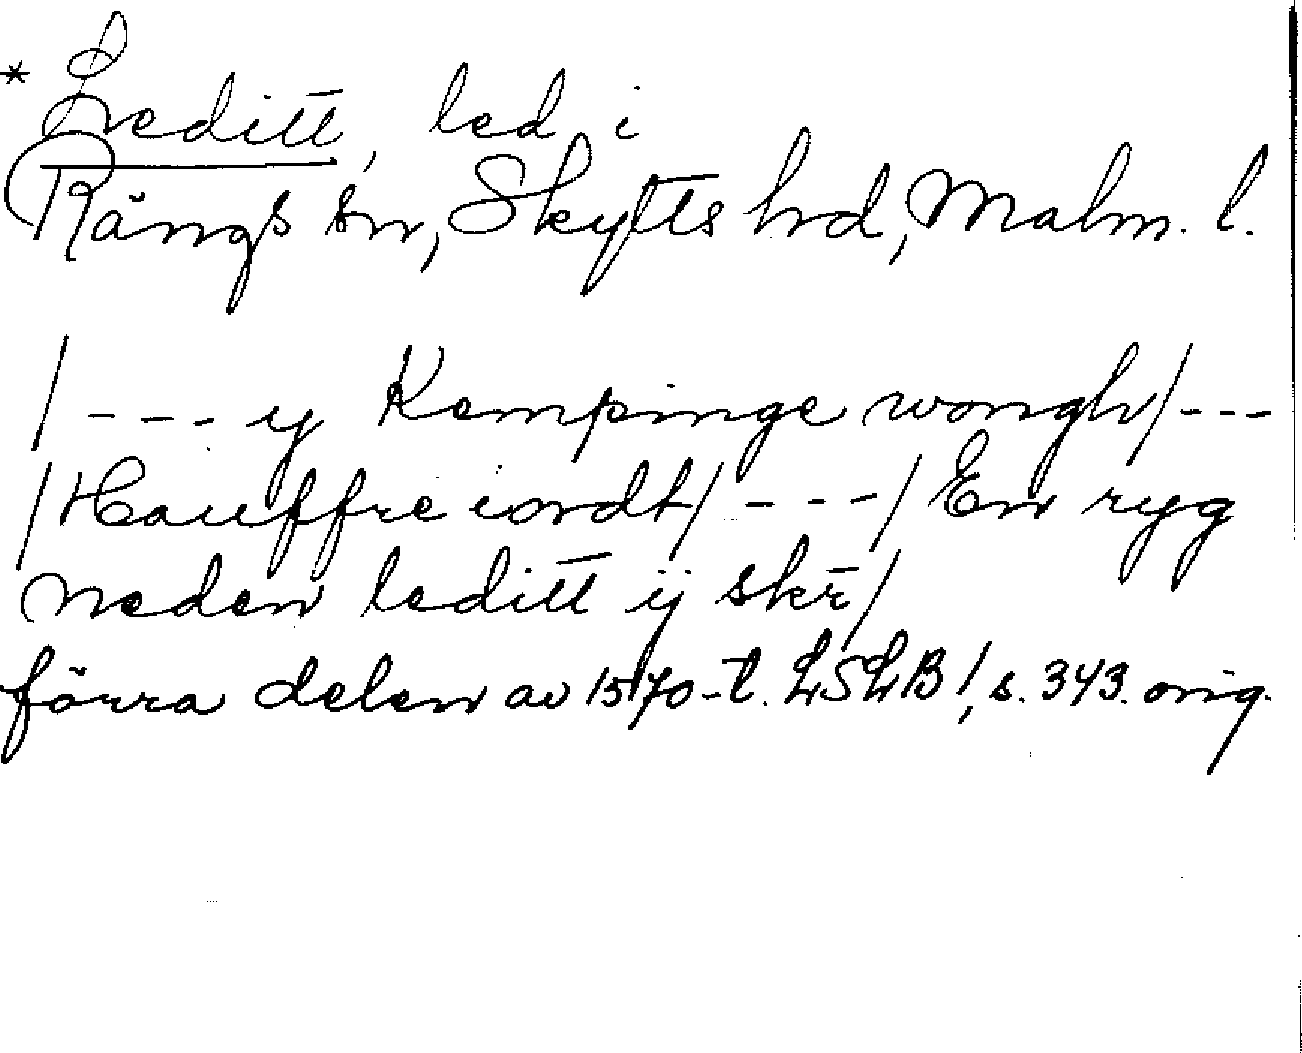 * Leditt, led i
Rängs sn, Skytts hd, Malm. l.
/ - - - ij Kempinge wongh/ - - -
/Hauffre iordt/ - - -/ En ryg
neden leditt ij skr̄/
förra delen av 1570-t. LSLB1, s. 343. orig.